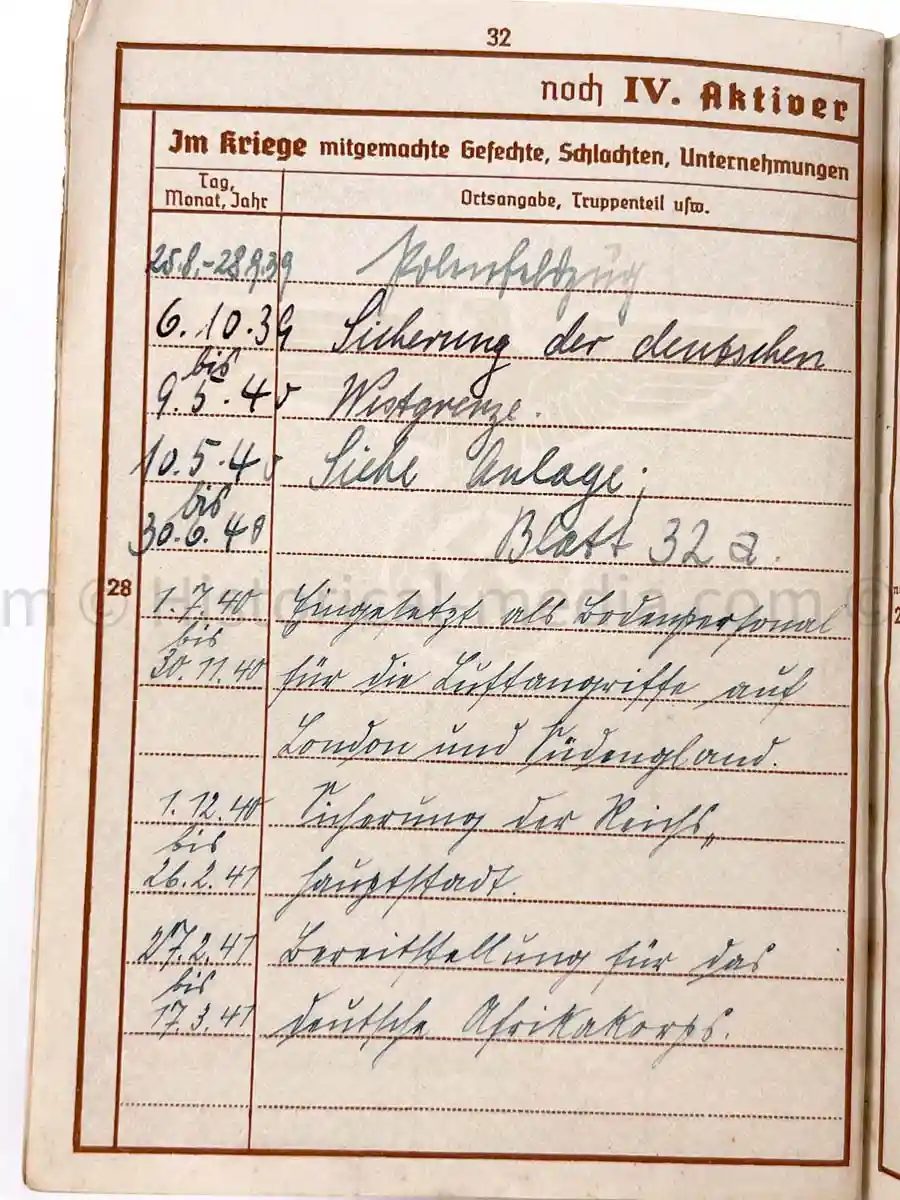 32
noch IV. Aktiver
Im Kriege mitgemachte Gefechte, Schlachten, Unternehmungen
Tag, Monat, Jahr
Ortsangabe, Truppenteil usw.
25.8.-28.9.39 Polenfeldzug
6.10.39 Sicherung der deutschen
bis
9.5.40 Westgrenze.
10.5.40 Siehe Anlage;
bis
30.6.40 Blatt 32a.
28
1.7.40 Eingesetzt als Bodenpersonal
bis
30.11.40 für die Luftangriffe auf
London und Südengland.
1.12.40 Sicherung der Reichs„
bis
26.2.41 hauptstadt.
27.2.41 Bereitstellung für das
bis
17.3.41 deutsche Afrikakorps.
m © Historical-media.com ©